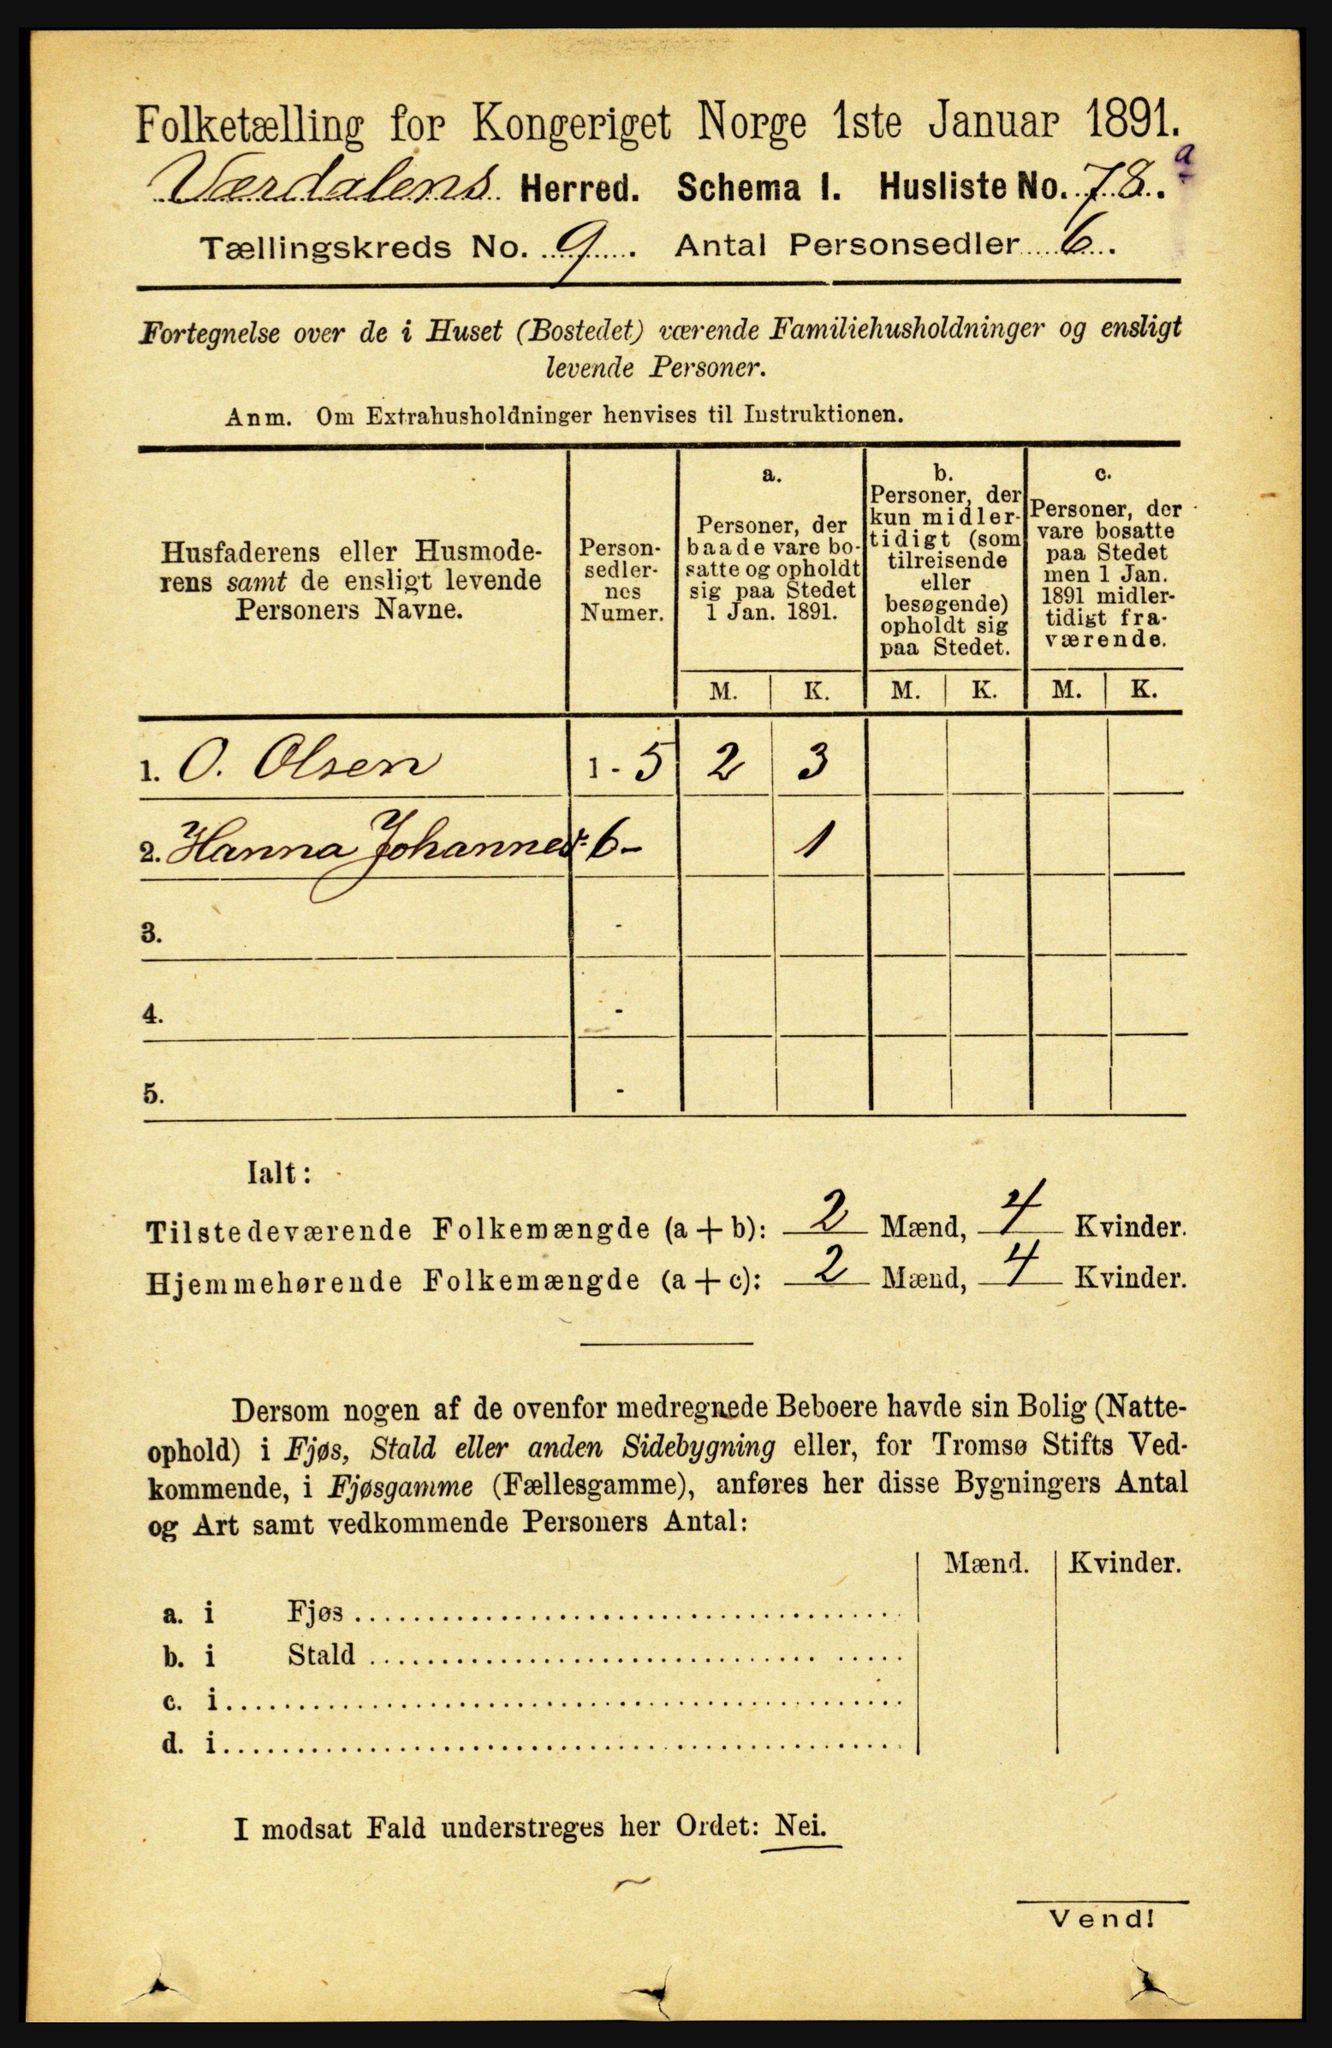 Folketælling for Kongeriget Norge 1ste Januar 1891.
Værdalens Herred. Schema I. Husliste No. 78.a
Tællingskreds No. 9. Antal Personsedler 6.
Fortegnelse over de i Huset (Bostedet) værende Familiehusholdninger og ensligt
levende Personer.
Anm. Om Extrahusholdninger henvises til Instruktionen.
Husfaderens eller Husmode-
rens samt de ensligt levende
Personers Navne.
Person-
sedler-
nes
Numer.
a.
Personer, der
baade vare bo-
satte og opholdt
sig paa Stedet
1 Jan. 1891.
b.
Personer, der
kun midler-
tidigt (som
tilreisende
eller
besøgende)
opholdt sig
paa Stedet.
c.
Personer, der
vare bosatte
paa Stedet
men 1 Jan.
1891 midler-
tidigt fra-
værende.
M. K. M. K. M. K.
1. O. Olsen 1 - 5 2 3
2. Hanna Johannesd. 6 - 1
3. -
4. -
5. -
Ialt:
Tilstedeværende Folkemængde (a + b): 2 Mænd, 4 Kvinder.
Hjemmehørende Folkemængde (a + c): 2 Mænd, 4 Kvinder.
Dersom nogen af de ovenfor medregnede Beboere havde sin Bolig (Natte-
ophold) i Fjøs, Stald eller anden Sidebygning eller, for Tromsø Stifts Ved-
kommende, i Fjøsgamme (Fællesgamme), anføres her disse Bygningers Antal
og Art samt vedkommende Personers Antal:
Mænd. Kvinder.
a. i Fjøs
b. i Stald
c. i
d. i
I modsat Fald understreges her Ordet: Nei.
Vend!